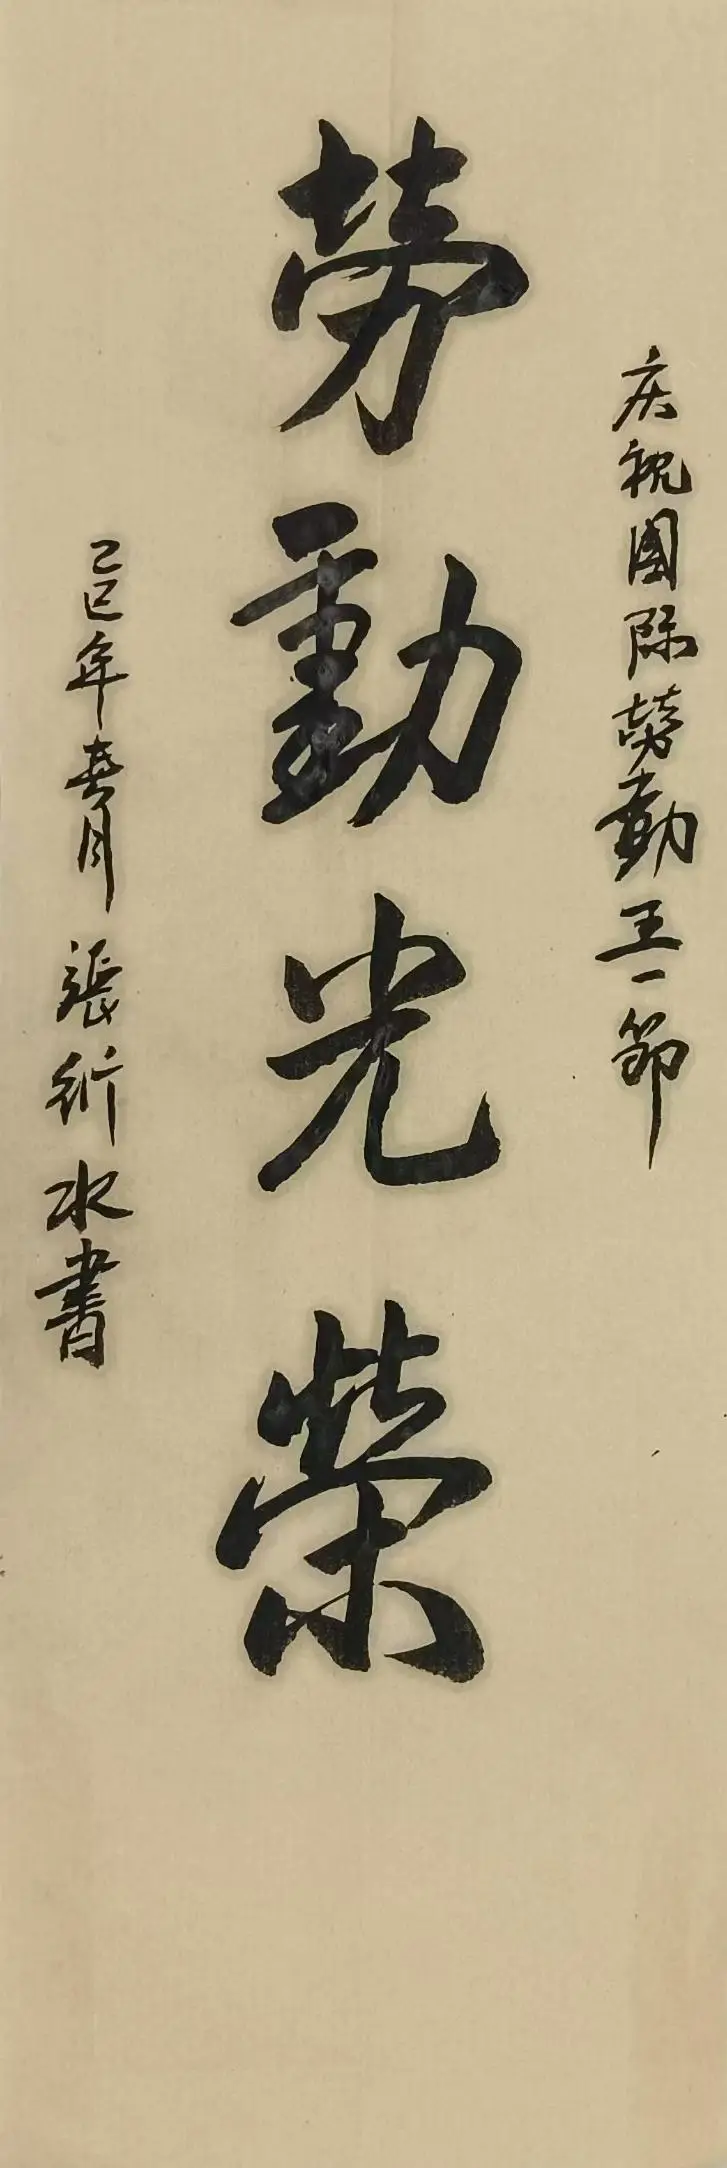 庆祝国际劳動五一節
劳動光榮
乙巳年春月 張衍水書